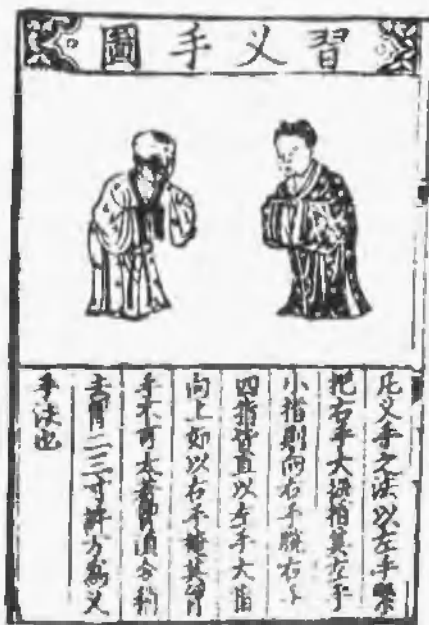 習叉手圖
凡叉手之法以左手緊
把右手大拇指其左手
小指則向右手腕右手
四指皆直以左手大指
向上如以右手掩其胷
手不可太著胷須令稍
去胷二三寸許方為叉
手法也